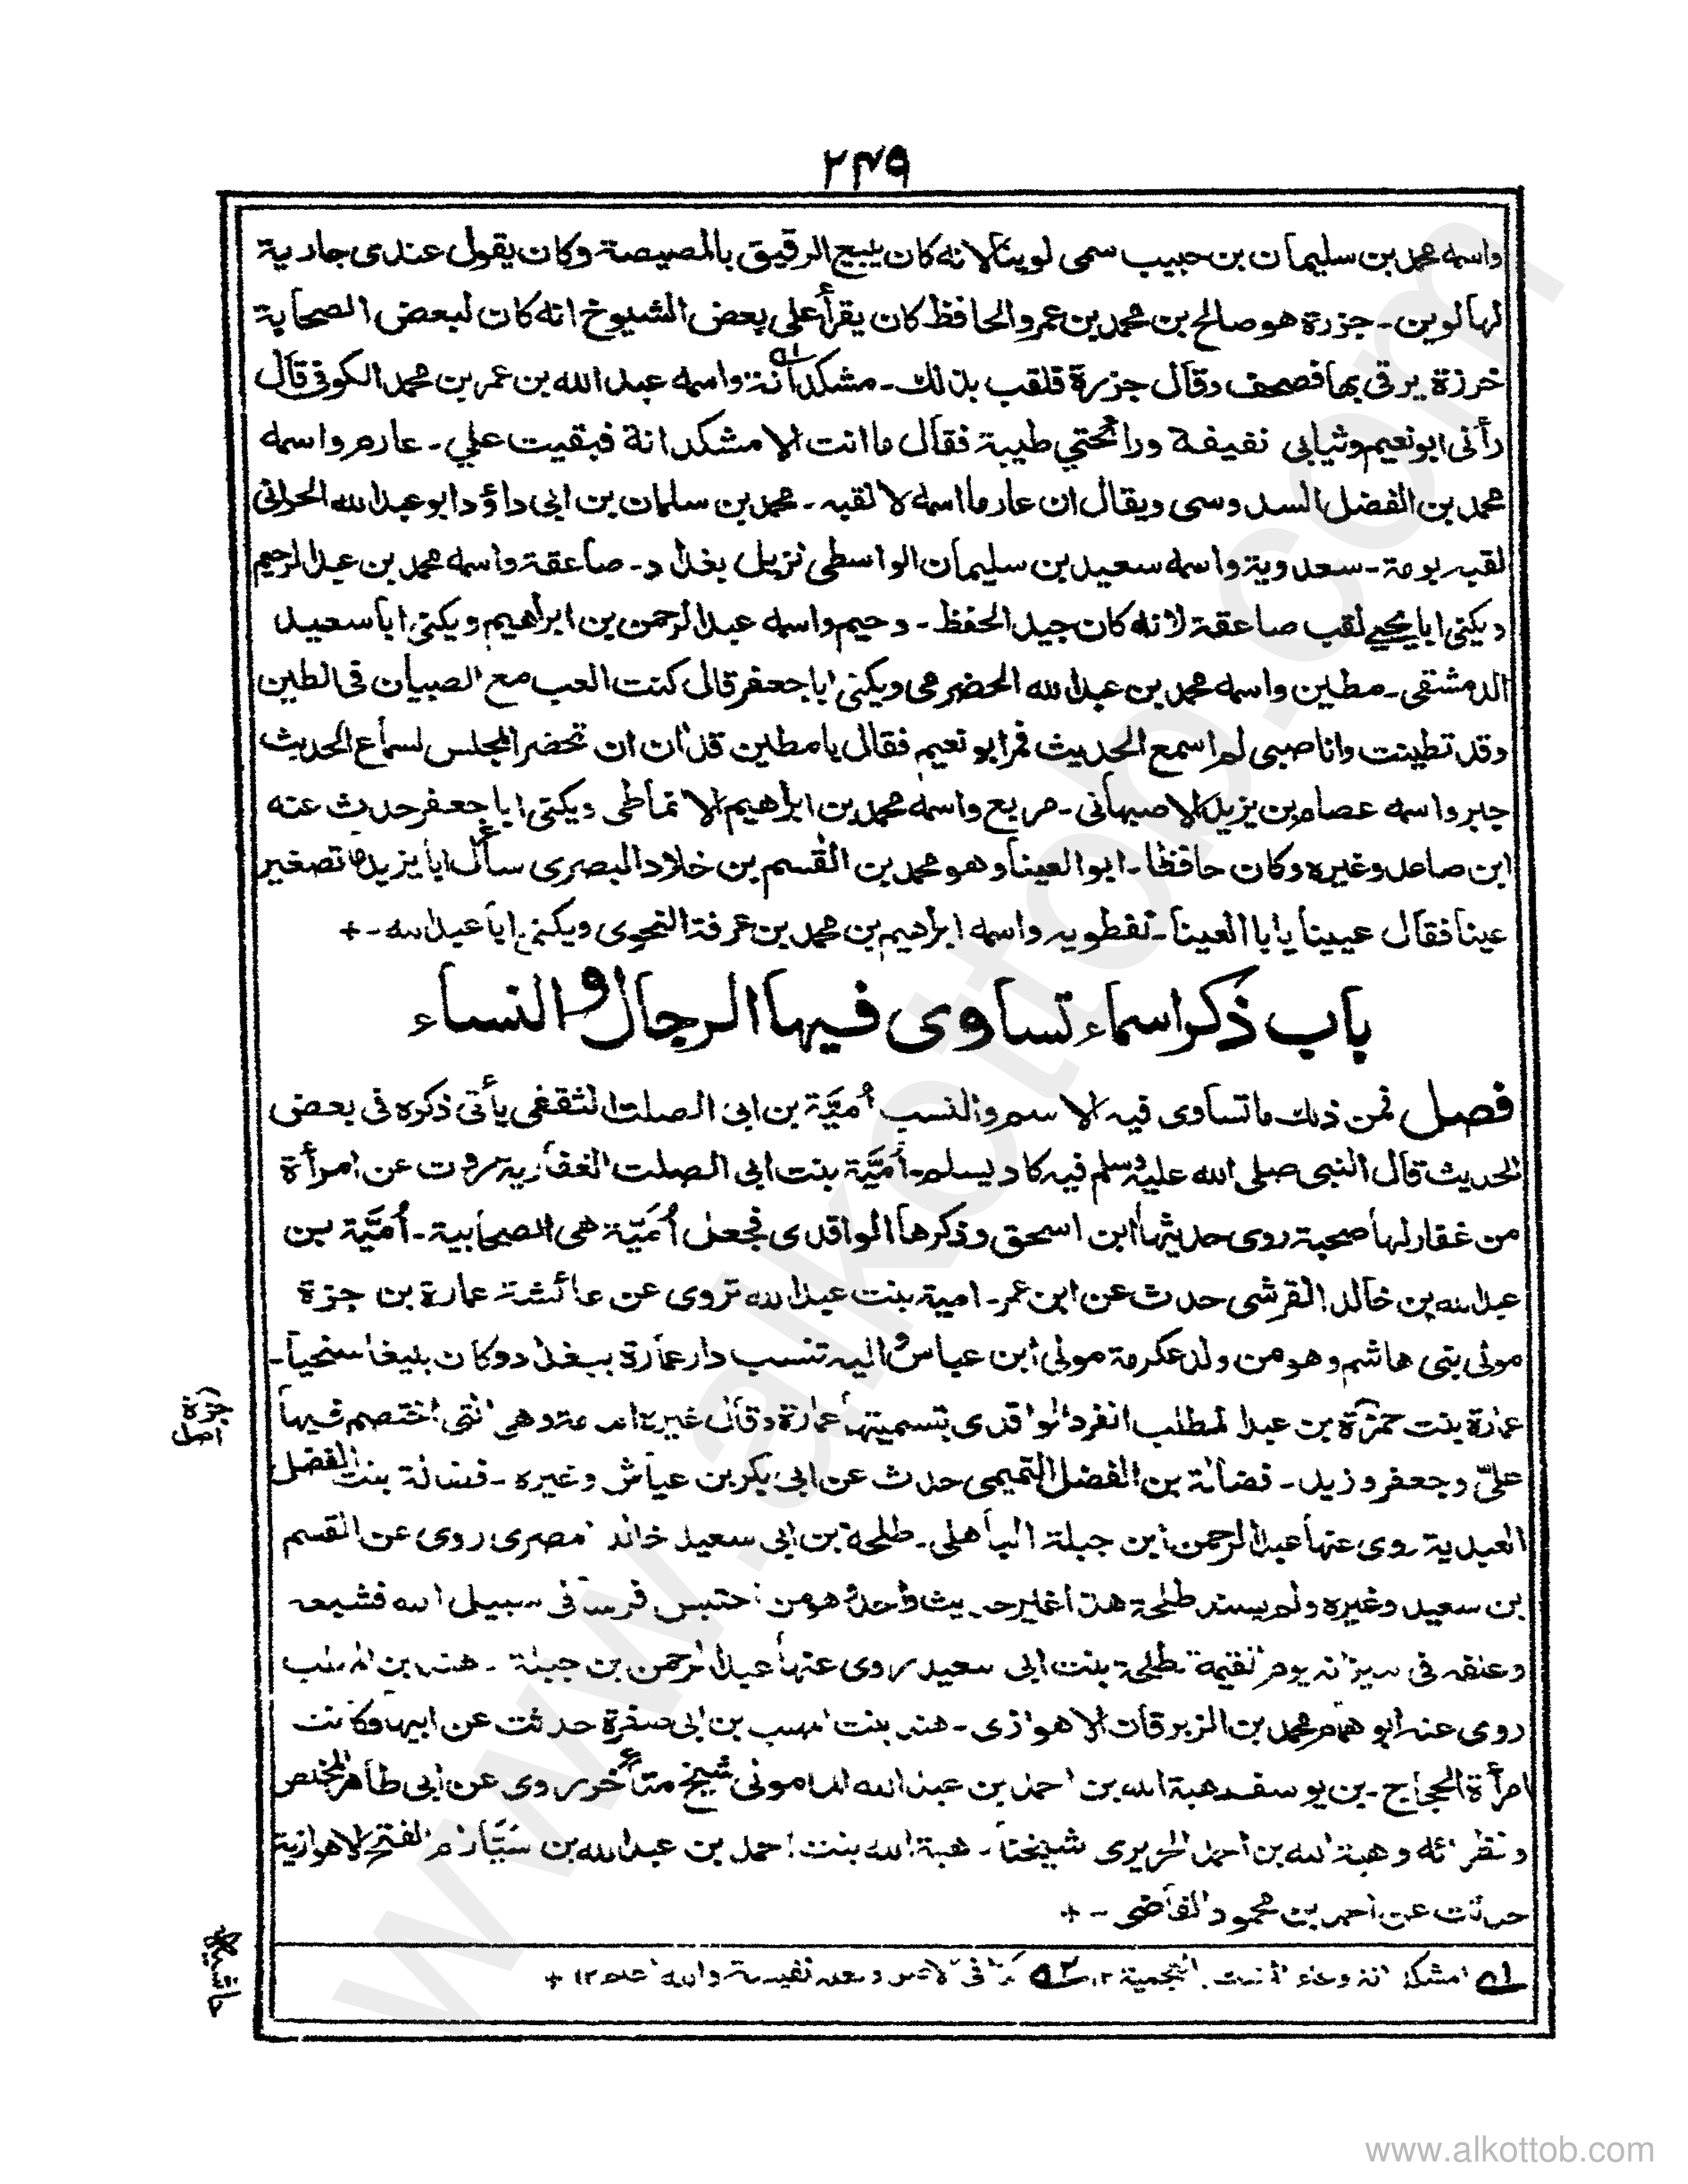 ۲۴۹
واسمه محمد بن سليمان بن حبيب سمى لوينا لانه كان يبيع الرقيق بالمصيصة وكان يقول عندى جارية
لها لوين ـ جزرة هو صالح بن محمد بن عمرو الحافظ كان يقرأ على بعض الشيوخ انه كان لبعض الصحابة
خرزة يرقى بها فصحف وقال جزرة فلقب بذلك ـ مشكدانة واسمه عبد الله بن عمر بن محمد الكوفى قال
رأنى ابو نعيم وثيابى نفيفة ورائحتي طيبة فقال ما انت الا مشكدانة فبقيت علي ـ عارم واسمه
محمد بن الفضل السدوسى ويقال ان عارما اسمه لا لقبه ـ محمد بن سلمان بن ابى داؤد ابو عبد الله الحرانى
لقبه بومة ـ سعدوية واسمه سعيد بن سليمان الواسطى نزيل بغداد ـ صاعقة واسمه محمد بن عبد الرحيم
ويكنى ابا يحيي لقب صاعقة لانه كان جيد الحفظ ـ دحيم واسمه عبد الرحمن بن ابراهيم ويكنى ابا سعيد
الدمشقى ـ مطين واسمه محمد بن عبد الله الحضرمى ويكنى ابا جعفر قال كنت العب مع الصبيان فى الطين
وقد تطينت وانا صبى لم اسمع الحديث فمر ابو نعيم فقال يا مطين قد ان ان تحضر المجلس لسماع الحديث
جبر واسمه عصام بن يزيد الاصبهانى ـ مربع واسمه محمد بن ابراهيم الانماطى ويكنى ابا جعفر حدث عنه
ابن صاعد وغيره وكان حافظا ـ ابو العينا وهو محمد بن القسم بن خلاد البصرى سأل ابا يزيد ما تصغير
عينا فقال عيينا يا ابا العينا ـ نفطويه واسمه ابراهيم بن محمد بن عرفة النحوى ويكنى ابا عبد الله ـ +
باب ذكر اسماء تساوى فيها الرجال والنساء
فصل فمن ذلك ما تساوى فيه الاسم والنسب أُميَّة بن ابى الصلت الثقفى يأتى ذكره فى بعض
الحديث قال النبى صلى الله عليه وسلم فيه كاد يسلم ـ أُميَّة بنت ابى الصلت الغفارية روت عن امرأة
من غفار لها صحبة روى حديثها ابن اسحق وذكرها الواقدى فجعل أُمَيّة هى الصحابية ـ أُميَّة بن
عبد الله بن خالد القرشى حدث عن ابن عمر ـ امية بنت عبد الله تروى عن عائشة عمارة بن جزة
مولى بنى هاشم وهو من ولد عكرمة مولى ابن عباس واليه تنسب دار عمارة ببغداد وكان بليغا سخيا ـ
عمارة بنت حمزة بن عبد المطلب انفرد الواقدى بتسميتها عمارة وقال غيره امامة وهى التى اختصم فيها
علىّ وجعفر وزيد ـ فضالة بن الفضل التميمى حدث عن ابى بكر بن عياش وغيره ـ فضالة بنت الفضل
العبدية روى عنها عبد الرحمن ابن جبلة الباهلى ـ طلحة بن ابى سعيد خالد مصرى روى عن القسم
بن سعيد وغيره ولم يسند طلحة هذا غير حديث واحد وهو من احتبس فرسا فى سبيل الله فشبعه
وعلفه فى ميزانه يوم القيمة طلحة بنت ابى سعيد روى عنها عبد الرحمن بن جبلة ـ هند بن المهلب
روى عنه ابو همام محمد بن الزبرقان الاهوازى ـ هند بنت المهلب بن ابى صفرة حدثت عن ابيها وكانت
امرأة الحجاج ـ بن يوسف هبة الله بن احمد بن عبد الله المامونى شيخ متأخر روى عن ابى طاهر المخلص
ونظرائه وهبة الله بن احمد الحريرى شيخنا ـ هبة الله بنت احمد بن عبد الله بن سَيَّار ام الفتح الاهوازية
حدثت عن احمد بن محمود القاضى ـ +
جزة
اصل
حاشيه
لـ۱ مشكدانة وعاء المسك بالعجمية ۱۲ لـ۲ كذا فى الاصل ولعله نفيسة والله اعلم ۱۲ +
www.alkottob.com
www.alkottob.com